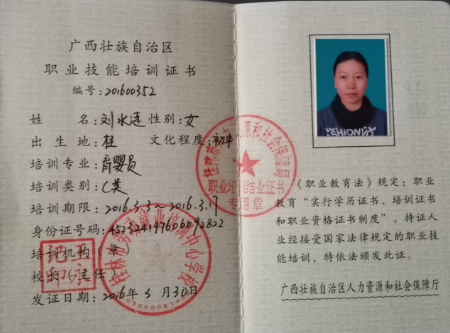 广西壮族自治区
职业技能培训证书
编号:201600352
姓 名:刘水连 性别:女
出生地:桂 文化程度:初中
培训专业:育婴员
培训类别:C类
培训期限:2016.3.3~2016.3.17
身份证号码:
培训机构(章)
校长(主任)
发证日期:2016年3月30日
职业培训结业证书
专用章
《职业教育法》规定:职业
教育“实行学历证书、培训证书
和职业资格证书制度”。持证人
业经接受国家法律规定的职业技
能培训,特依法颁发此证。
广西壮族自治区人力资源和社会保障厅